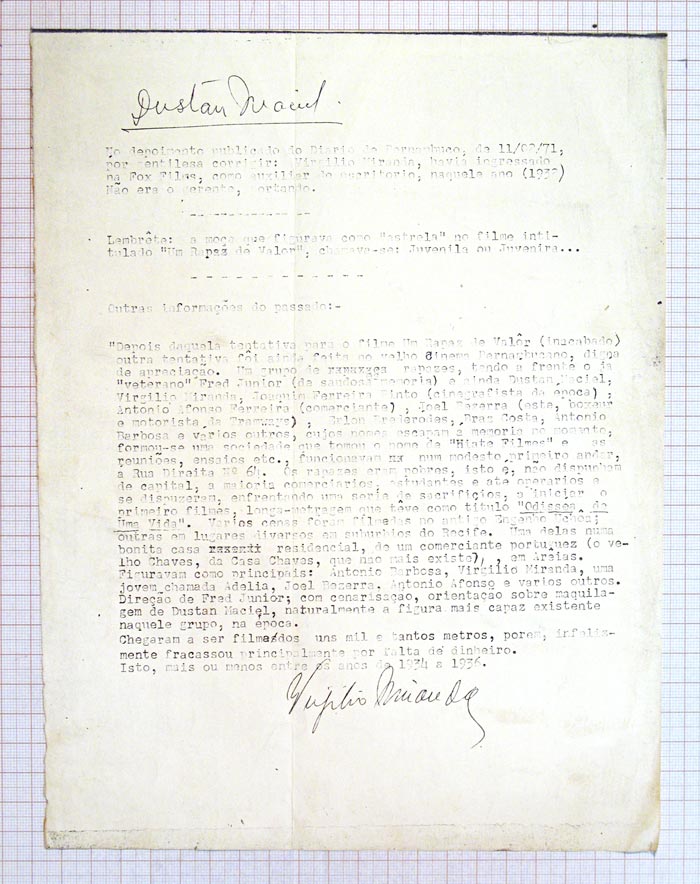 Dustan Maciel.
No depoimento publicado do Diario de Pernambuco, de 11/02/71,
por gentilesa corrigir: Virgilio Miranda, havia ingressado
na Fox Films, como auxiliar de escritorio, naquele ano (1932)
Não era o gerente, portando.
Lembrête: a moça que figurava como "estrela" no filme inti-
tulado "Um Rapaz de Valor", chamava-se: Juvenila ou Juvenira...
Outras informações do passado:-
"Depois daquela tentativa para o filme Um Rapaz de Valôr (inacabado)
outra tentativa fôi ainda feita no velho cinema Pernambucano, digna
de apreciação. Um grupo de rapazes, tendo a frente o já
"veterano" Fred Junior (da saudosa memoria) e ainda Dustan Maciel,
Virgilio Miranda, Joaquim Ferreira Pinto (cinegrafista da epoca) ,
Antonio Afonso Ferreira (comerciante) , Joel Bezerra (este, boxeur
e motorista da Tramways) , Erlon Braz Costa, Antonio
Barbosa e varios outros, cujos nomes escapam a memoria no momento,
formou-se uma sociedade que tomou o nome de "Hiate Filmes" e as
reuniões, ensaios etc., funcionavam num modesto primeiro andar,
a Rua Direita Nº 64. Os rapazes eram pobres, isto é, não dispunham
de capital, a maioria comerciarios, estudantes e até operarios e
se dispuzeram, enfrentando uma serie de sacrificios, a iniciar o
primeiro filmes, longa-metragem que têve como titulo "Odissea de
Uma Vida". Varios cenas foram filmadas no antigo Engenho Uchôa;
outras em lugares diversos em suburbios do Recife. Uma delas numa
bonita casa residencial, de um comerciante portuguez (o ve-
lho Chaves, da Casa Chaves, que não mais existe), , em Areias.
Figuravam como principais: Antonio Barbosa, Virgilio Miranda, uma
jovem chamada Adelia, Joel Bezerra, Antonio Afonso e varios outros.
Direção de Fred Junior; com cenarisação, orientação sobre maquila-
gem de Dustan Maciel, naturalmente a figura mais capaz existente
naquele grupo, na epoca.
Chegaram a ser filmados uns mil e tantos metros, porem, infeliz-
mente fracassou principalmente por falta de dinheiro.
Isto, mais ou menos entre os anos de 1934 a 1936.
Virgilio Miranda